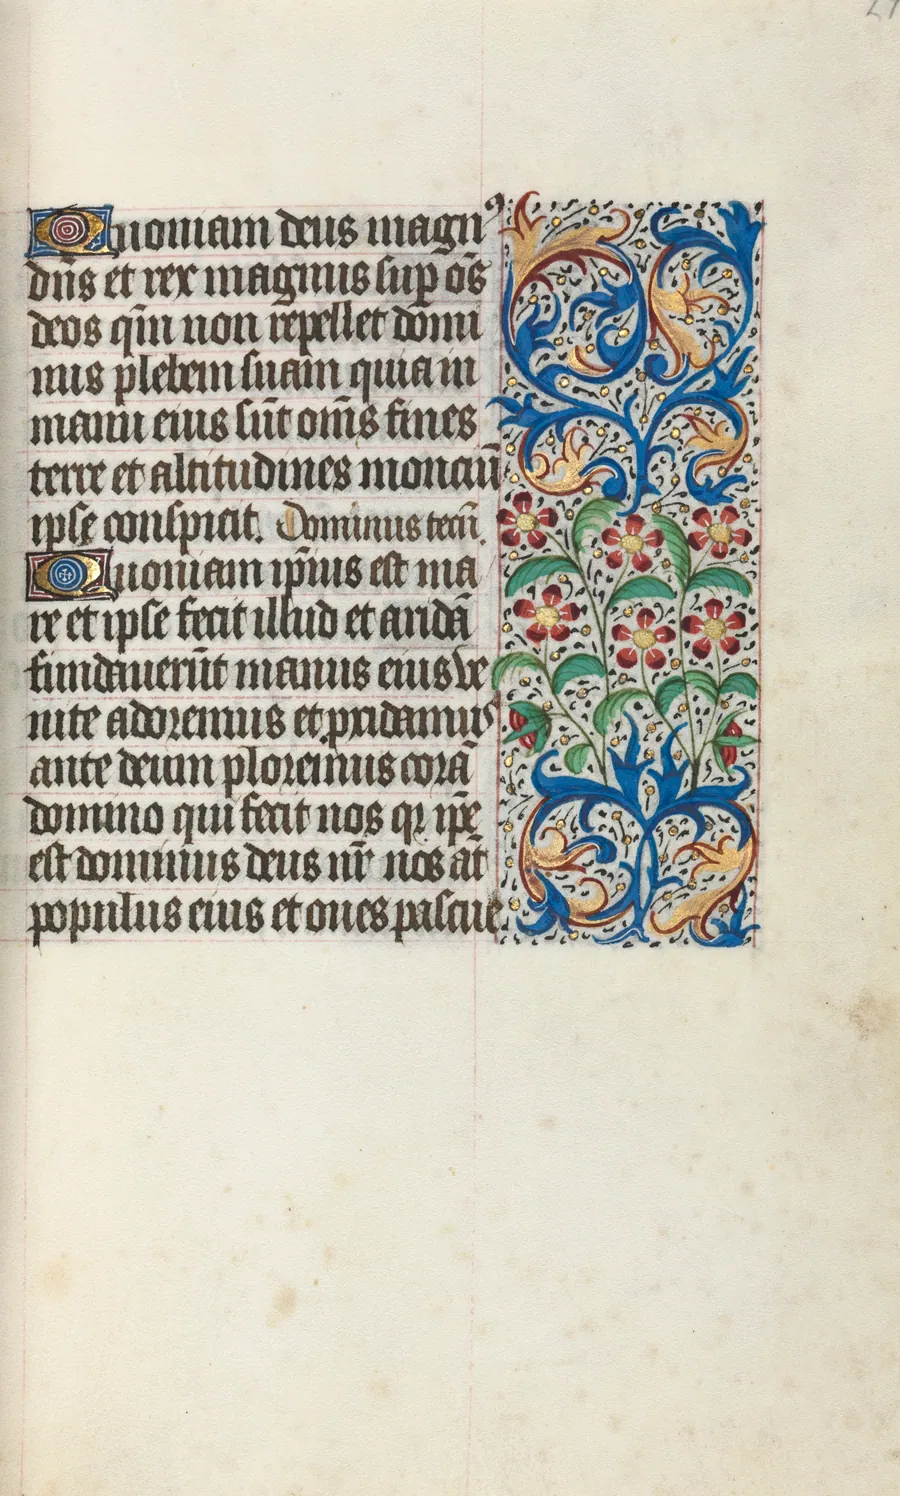 Quoniam deus magn⁹
dn̄s et rex magnus sup om̄s
deos qm̄ non repellet domi
nus plebem suam quia in
manu eius sūt om̄s fines
terre et altitudines monciū
ipse conspicit. Dominus tecū.
Quoniam ip̄ius est ma
re et ipse fecit illud et aridā
fundauerūt manus eius ve
nite adoremus et p̱cidamus
ante deum ploremus corā
domino qui fecit nos qꝛ ip̄e
est dominus deus nr̄ nos at̄
populus eius et oues pascue.